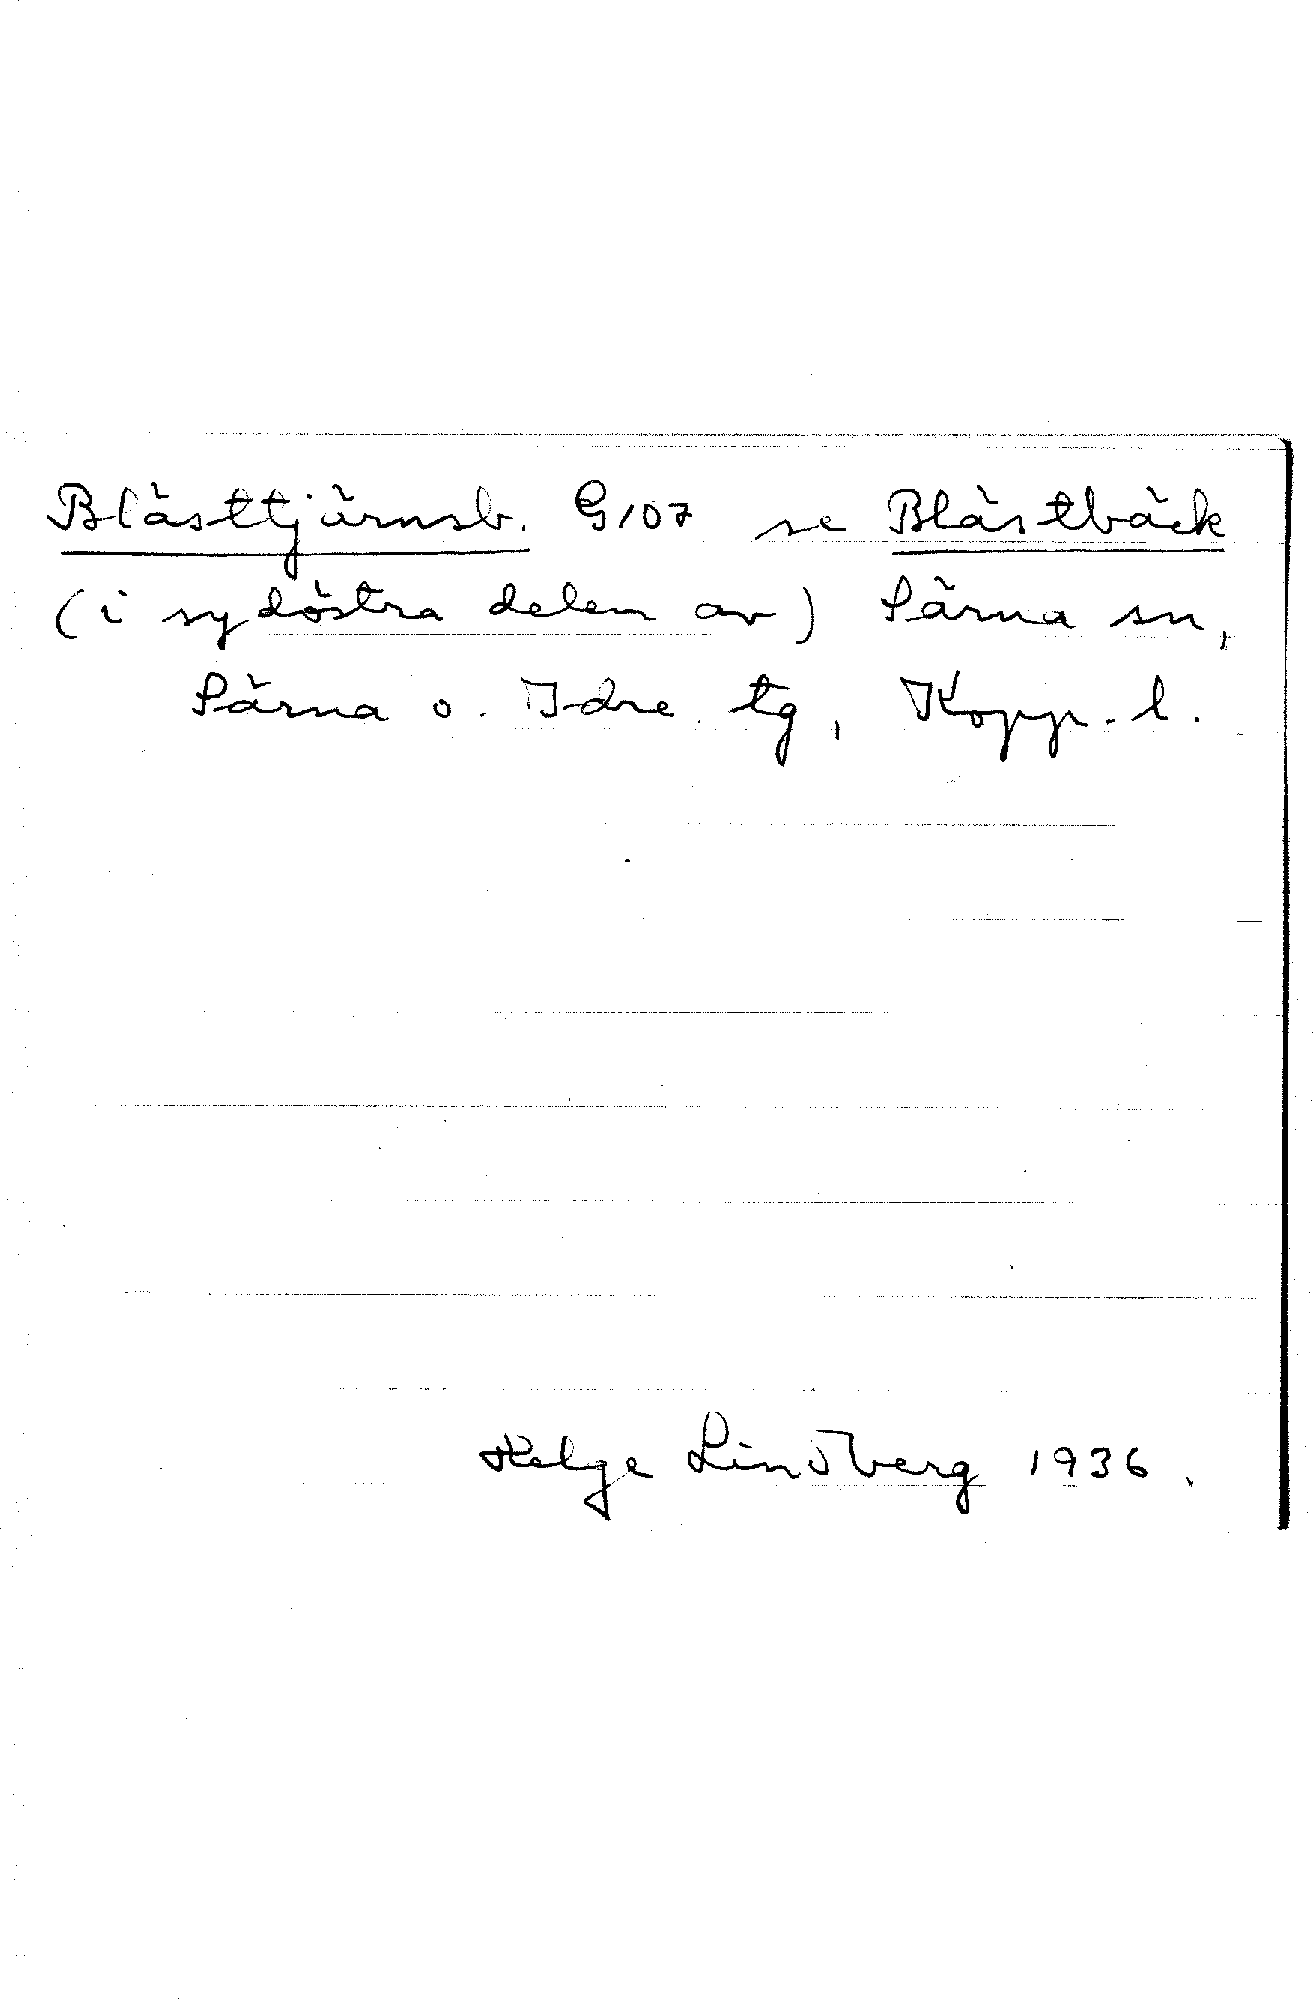 Blästtjärnsb. G107 se Blästbäck
(i sydöstra delen av) Särna sn,
Särna o. Idre tg, Kopp. l.
Helge Lindberg 1936.